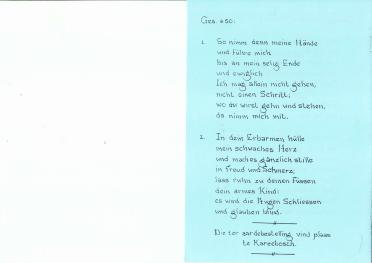 Ges. 450:
1. So nimm denn meine Hände
und führe mich
bis an mein selig Ende
und ewiglich
Ich mag allein nicht gehen,
nicht einen Schritt;
wo du wirst gehn und stehen,
da nimm mich mit.
2. In dein Erbarmen hülle
mein schwaches Herz
und mach es gänzlich stille
in Freud und Schmerz;
lass ruhn zu deinen Füssen
dein armes Kind:
es wird die Augen Schliessen
und glauben blind.
Die ter aardebestelling vind plaas
te Kareebosch.